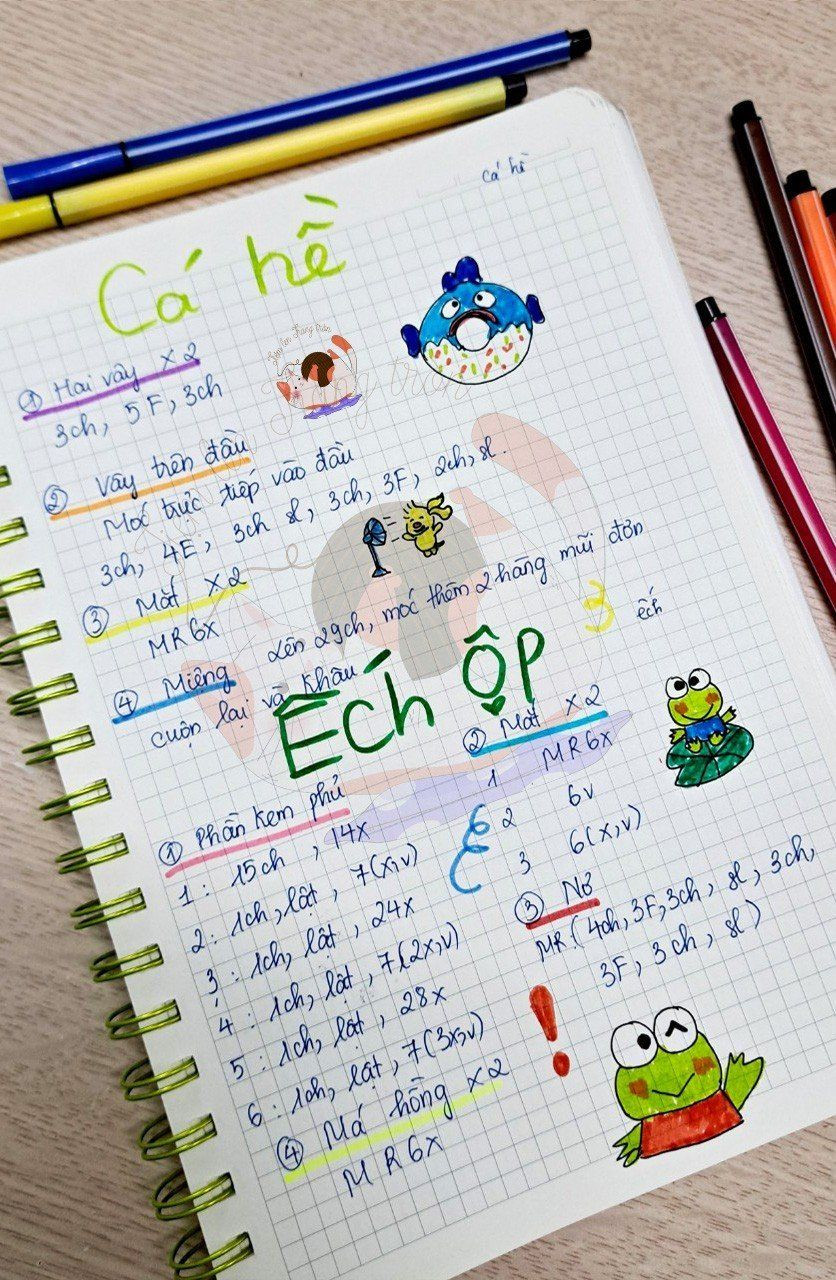 cá hề
Cá hề
① Hai vây x2
3ch, 5F, 3ch
② Vây trên đầu
Móc trực tiếp vào đầu
3ch, 4E, 3ch sl, 3ch, 3F, 2ch, sl.
③ Mắt x2
MR6x
④ Miệng Lên 29ch, móc thêm 2 hàng mũi đơn
cuộn lại và khâu
3
ếch
Ếch Ộp
① Phần kem phủ
1: 15ch, 14x
2: 1ch, lật, 7(x,v)
3: 1ch, lật, 24x
4: 1ch, lật, 7(2x,v)
5: 1ch, lật, 28x
6: 1ch, lật, 7(3x,v)
② Mắt x2
1 MR6x
2 6v
3 6(x,v)
③ Nơ
MR(4ch, 3F, 3ch, sl, 3ch,
3F, 3ch, sl)
!
④ Má hồng x2
MR6x